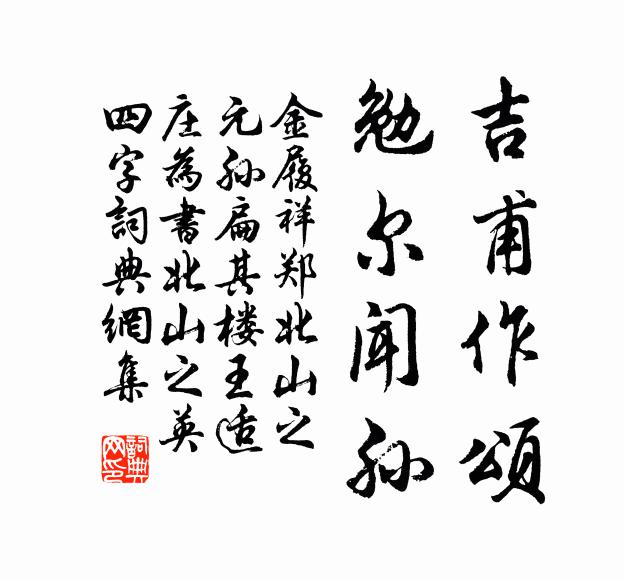 吉甫作頌
勉尔闻孙
金履祥郑北山之
元孙扁其楼王适
庄為書北山之英
四字詞典網集
詞典
网印